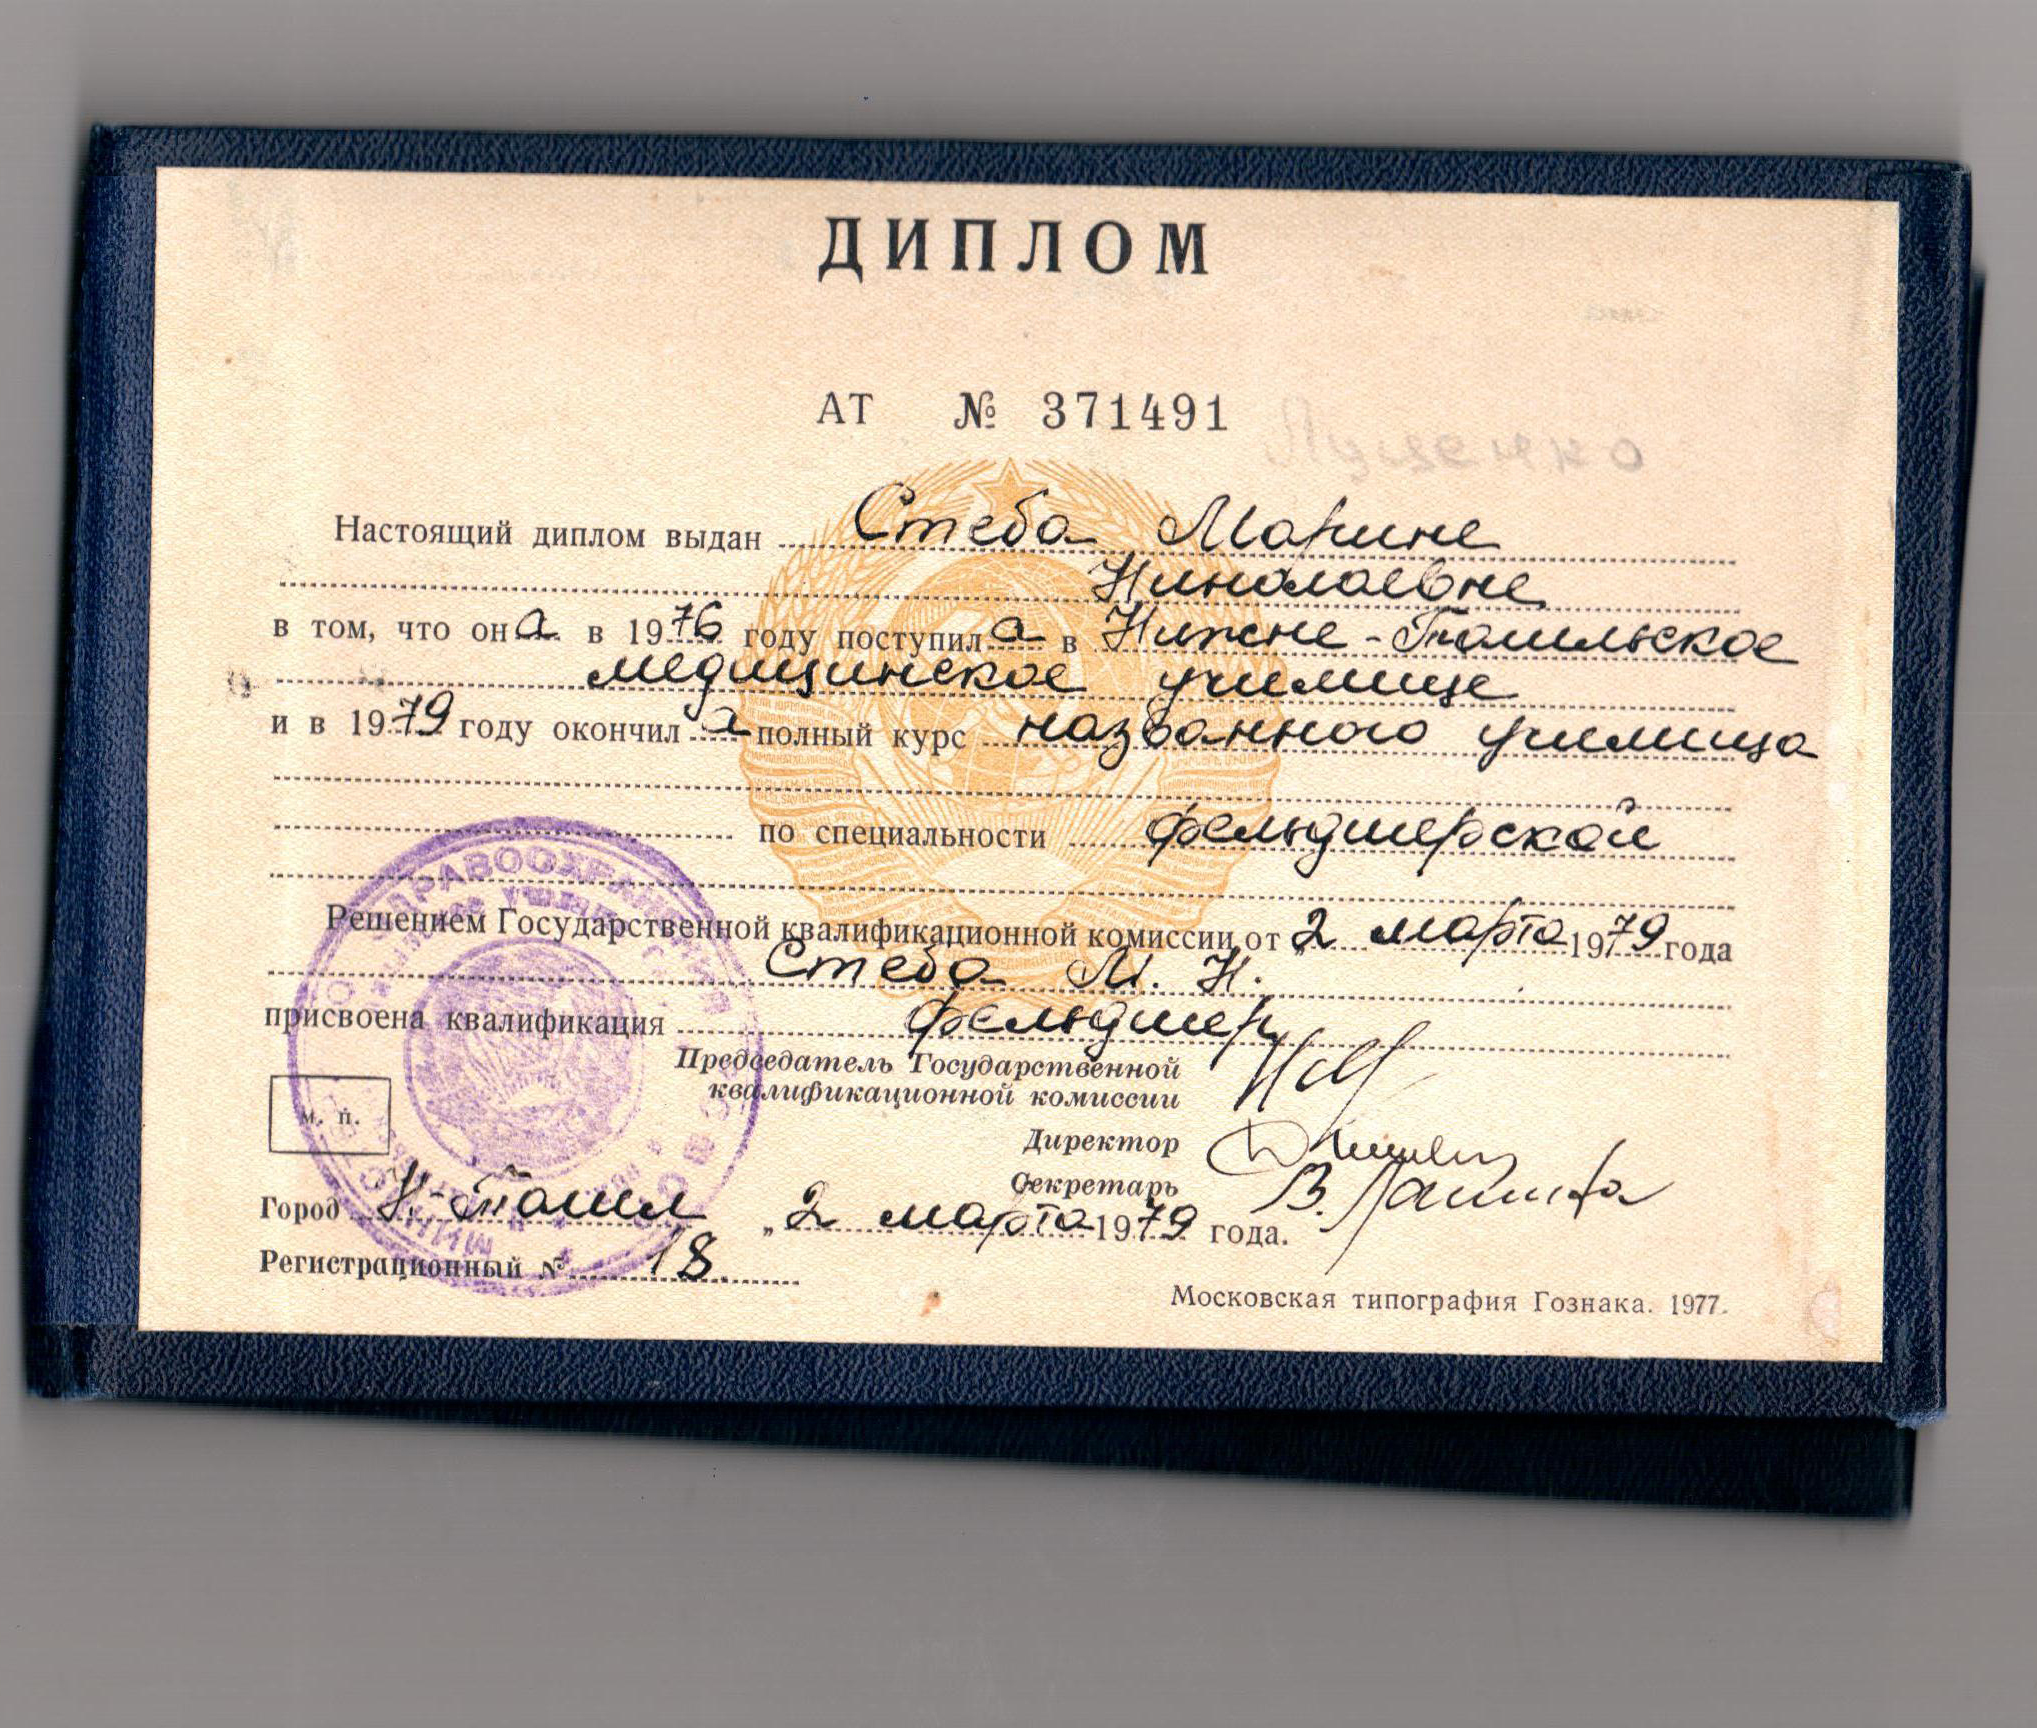 ДИПЛОМ
АТ № 371491
Лущенко
Настоящий диплом выдан Стеба Марине
Николаевне
в том, что она в 1976 году поступила в Нижне-Тагильское
медицинское училище
и в 1979 году окончила полный курс названного училища
по специальности фельдшерской
Решением Государственной квалификационной комиссии от „2 марта 1979 года
Стеба М. Н.
присвоена квалификация фельдшер
Председатель Государственной
квалификационной комиссии
Директор
Секретарь
м. п.
Город Н-Тагил „2 марта 1979 года.
Регистрационный № 18.
Московская типография Гознака. 1977.